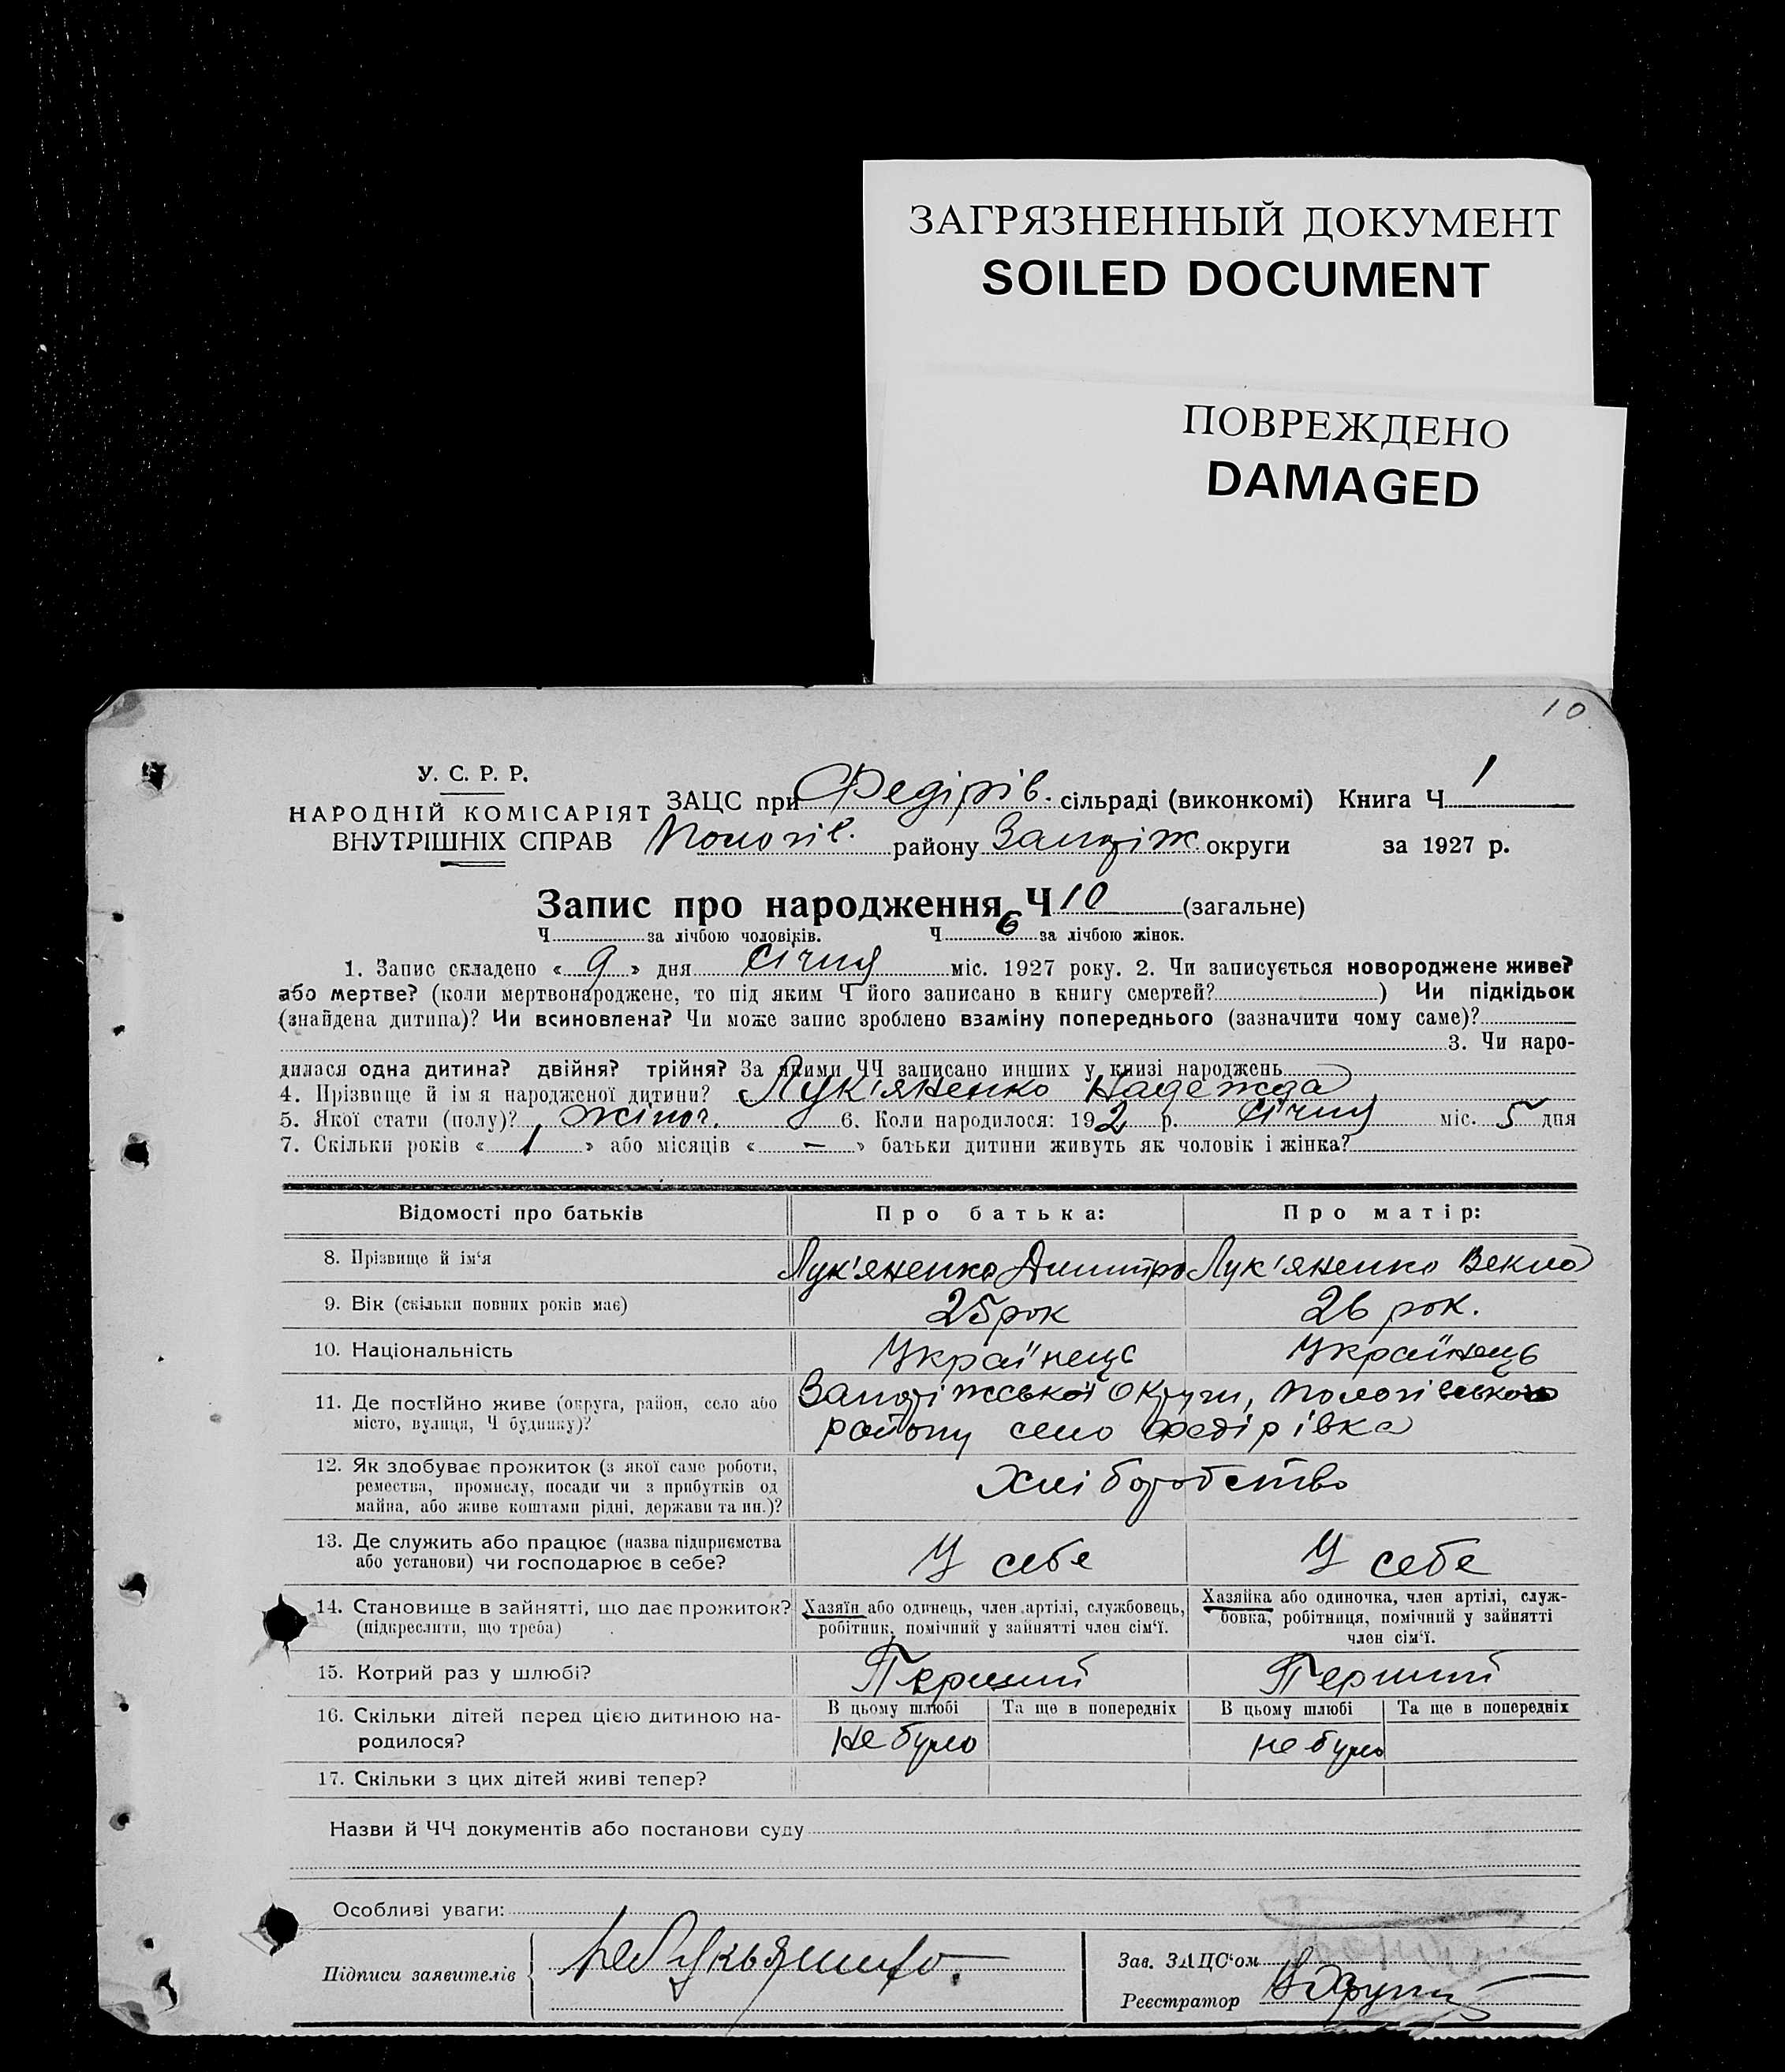 ЗАГРЯЗНЕННЫЙ ДОКУМЕНТ
SOILED DOCUMENT
ПОВРЕЖДЕНО
DAMAGED
10
У. С. Р. Р.
НАРОДНІЙ КОМІСАРІЯТ
ВНУТРІШНІХ СПРАВ
ЗАЦС при Федірів. сільраді (виконкомі) Книга Ч 1
Пологів. району Запоріж округи за 1927 р.
Запис про народження Ч 10 (загальне)
Ч за лічбою чоловіків. Ч 6 за лічбою жінок.
1. Запис складено « 9 » дня січня міс. 1927 року. 2. Чи записується новороджене живе?
або мертве? (коли мертвонароджене, то під яким Ч його записано в книгу смертей? ) Чи підкідьок
(знайдена дитина)? Чи всиновлена? Чи може запис зроблено взаміну попереднього (зазначити чому саме)?
3. Чи наро-
дилася одна дитина? двійня? трійня? За якими ЧЧ записано инших у книзі народжень
4. Прізвище й ім я народженої дитини? Лук'яненко Надежда
5. Якої стати (полу)? жіноч. 6. Коли народилося: 192 р. січня міс. 5 дня
7. Скільки років « 1 » або місяців « — » батьки дитини живуть як чоловік і жінка?
Відомості про батьків Про батька: Про матір:
8. Прізвище й ім‘я Лук'яненко Дмитро Лук'яненко Векла
9. Вік (скільки повних років має) 25 рок 26 рок.
10. Національність Українець Українець
11. Де постійно живе (округа, район, село або Запоріжської Округи, Пологівського
місто, вулиця, Ч будинку)? району село Федірівка
12. Як здобуває прожиток (з якої саме роботи,
ремества, промислу, посади чи з прибутків од Хліборобство
майна, або живе коштами рідні, держави та ин.)?
13. Де служить або працює (назва підприємства
або установи) чи господарює в себе? У себе У себе
14. Становище в зайнятті, що дає прожиток? Хазяїн або одинець, член артілі, службовець, Хазяйка або одиночка, член артілі, служ-
(підкреслити, що треба) робітник, помічний у зайнятті член сім‘ї. бовка, робітниця, помічний у зайнятті
член сім‘ї.
15. Котрий раз у шлюбі? Перший Перший
16. Скільки дітей перед цією дитиною на- В цьому шлюбі Та ще в попередніх В цьому шлюбі Та ще в попередніх
родилося? Не було не було
17. Скільки з цих дітей живі тепер?
Назви й ЧЧ документів або постанови суду
Особливі уваги:
Підписи заявителів
Зав. ЗАЦС‘ом
Реєстратор